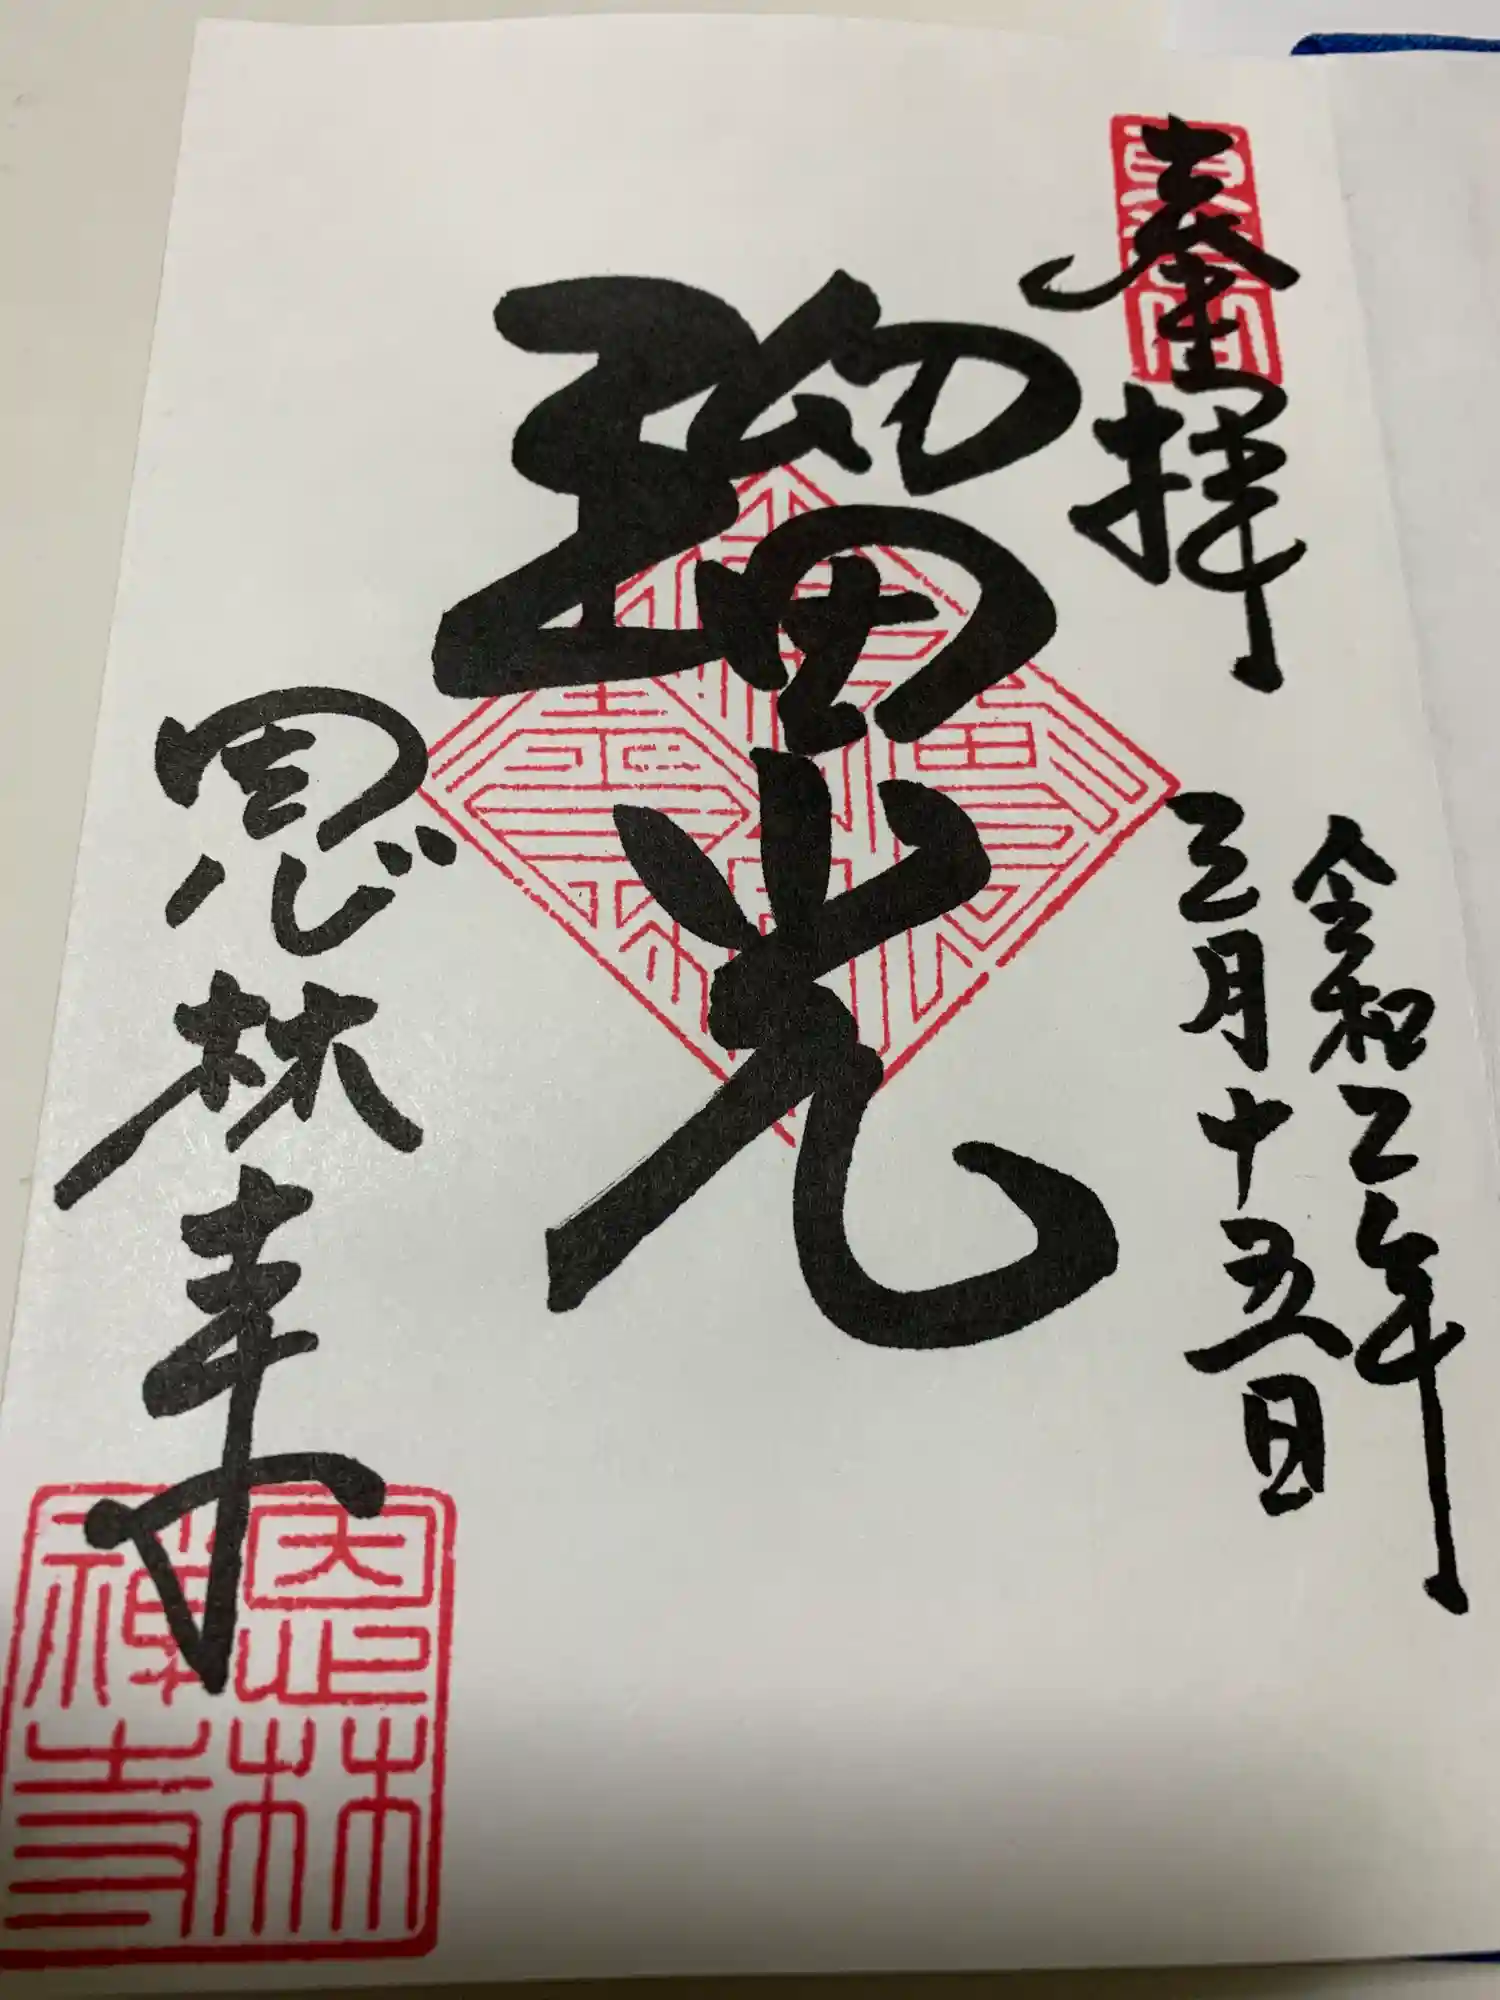 奉拝
令和二年
三月十五日
瑠光
恩林寺
恩林
禅寺